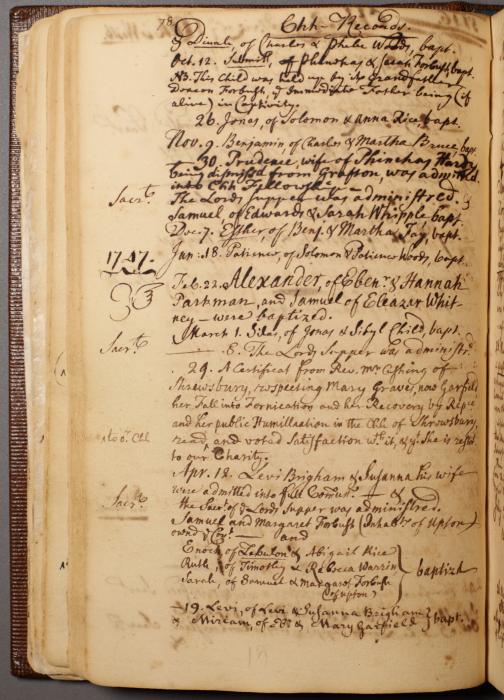 78 Chh Records.
& Divinale, of Charles & Phebe Woods, bapt.
Oct. 12. Submit, of Phinehas & Sarah Forbush, bapt.
NB. This Child was held up by its Grandfather
Deacon Forbush, ye Immediate Father being (if
alive) in Captivity.
26. Jonas, of Solomon & Anna Rice, bapt.
Nov. 9. Benjamin of Charles & Martha Bruce, bapt
— 30. Prudence, wife of Phinehas Hardy
being dismissed from Grafton, was admitted
into Chh Fellowship —
Sacrt. The Lords supper was administred. }
Samuel of Edwards & Sarah Whipple bapt.
Dec. 7. Esther, of Benj. & Martha Fay, bapt.
Jan. 18. Patience, of Solomon & Patience Woods, bapt.
1747.
Feb. 22. Alexander, of Ebenr. & Hannah
Parkman, and Samuel of Eleazer Whit-
ney — were baptized.
March 1. Silas, of Jonas & Sibyl Child, bapt.
Sacrt. — 8. The Lords Supper was administrd.
. 29. A Certificat from Rev. Mr. Cushing of
Shrewsbury, respecting Mary Graves, now Garfield
her Fall into Fornication and her Recovery by Repce
and her public Humiliation in the Chh of Shrewsbury,
read, and voted Satisfaction wth it, & yt She is restd
to our Charity.
Apr. 18. Levi Brigham & Susanna his wife
were admitted into full Comun. — &
Sacrt. the Sacrt. of ye Lords Supper was administred.
Samuel and Margaret Forbush (Inhabts. of Upton)
ownd ye Covt — and
Enoch of Zebulon & Abigail Rice
Ruth, of Timothy & Rebecca Warrin
Sarah, of Samuel & Margaret Forbush
(of upton) } baptizd
— 19. Levi, of Levi & Susanna Brigham }
& Miriam, of & Mary Garfield } bapt.